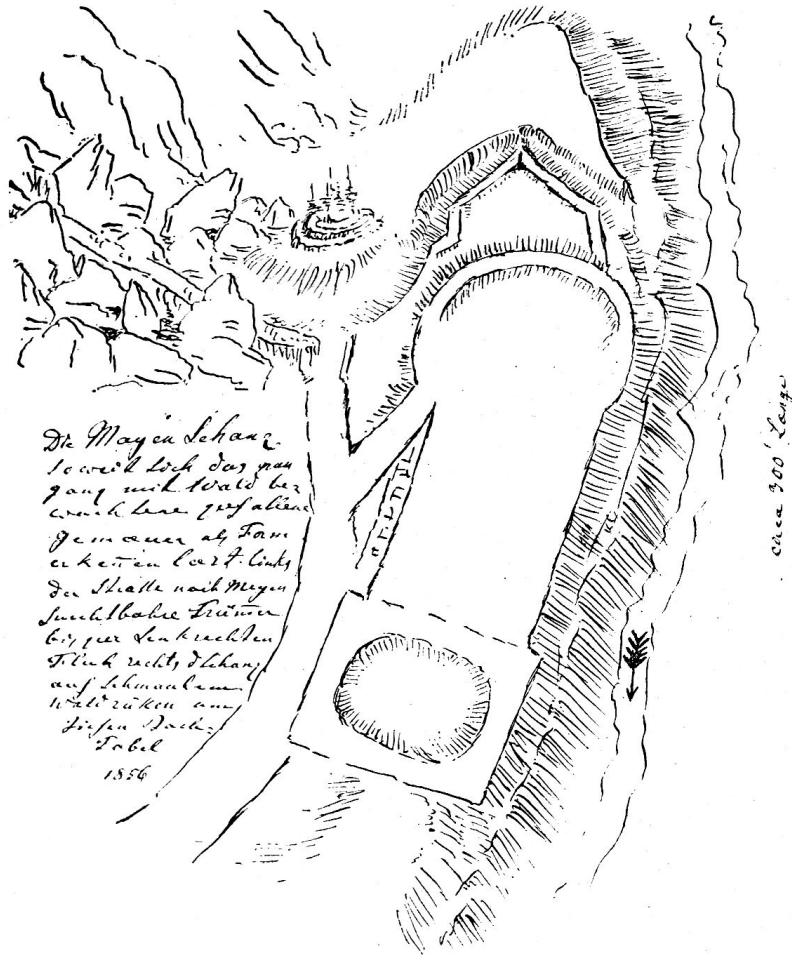 Die Mayen Schanz
soweit sich das nun
ganz mit Wald be
wachsene gefallene
Gemäuer als Form
erkenen laest. links
der Straße nach Meyen
furchtbahre Trümer
bis zur Senkrechten
Fluh rechts d Schanz
auf schmahlem
Waldrüken am
tiefen Bach
Tobel
1856
circa 300' Länge